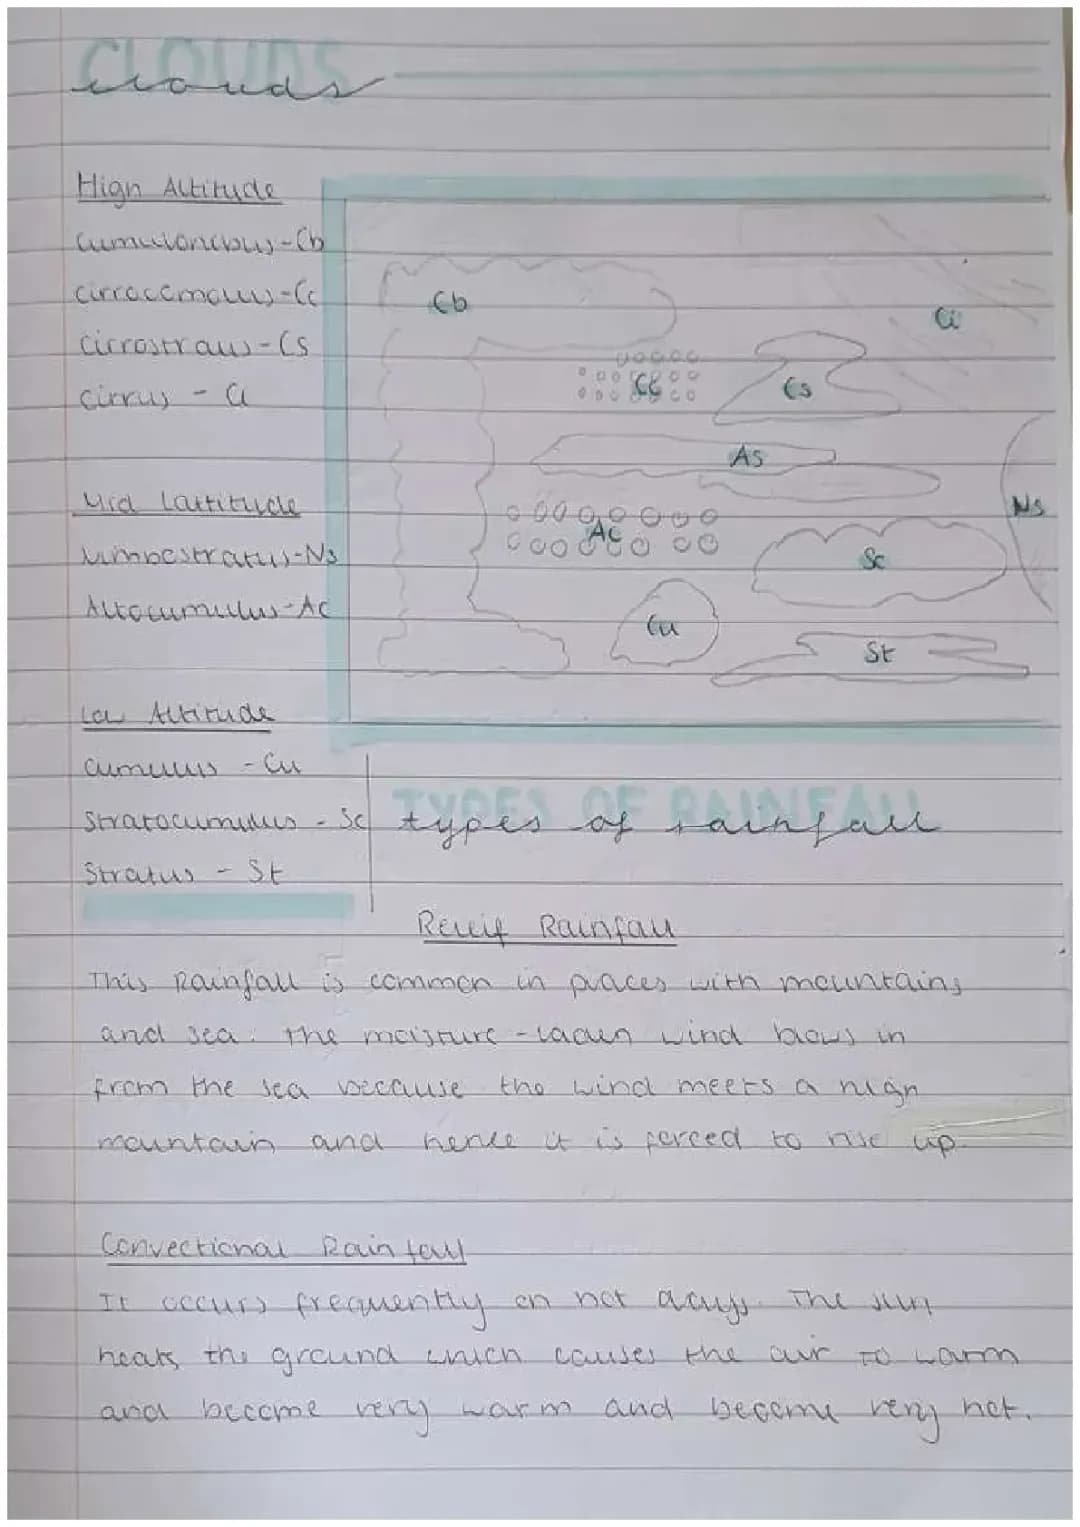 CLOUDS
clouds
High Altitude
Cumulonibus - Cb
Cirrocumolus - Cc
Cirrostratus - Cs
Cirrus - Ci
Mid Lattitude
Nimbostratus - Ns
Altocumulus - Ac
Low Altitude
Cumulus - Cu
Stratocumulus - Sc
Stratus - St
Cb
Ci
Cc
Cs
As
Ns
Ac
Sc
Cu
St
TYPES OF RAINFALL
types of rainfall
Releif Rainfall
This Rainfall is common in places with mountains
and sea. The moisture - laden wind blows in
from the sea because the wind meets a high
mountain and hence it is forced to rise up.
Convectional Rainfall
It occurs frequently on hot days. The sun
heats the ground which causes the air to warm
and become very warm and become very hot.